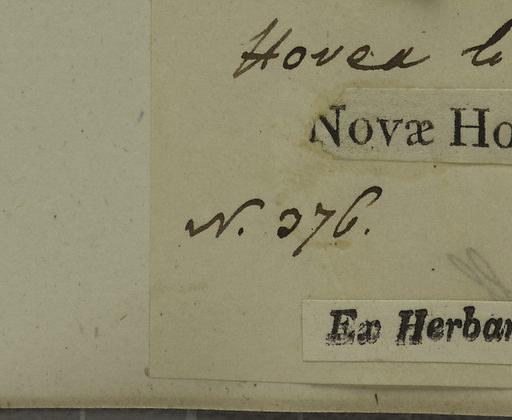 Hovea l
Novæ Ho
N. 376.
Ex Herbar